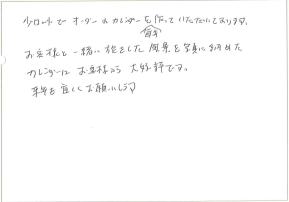 小ロットでオーダーのカレンダーを作っていただいております。
毎年
お客様と一緒に旅をした風景を写真に納めた
カレンダーは お客様から 大好評です。
来年も宜しくお願いします